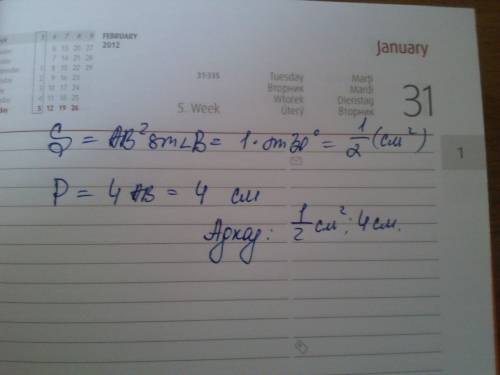 FEBRUARY
2012
January
31-335
Tuesday
Вторник
Wtorek
Úterý
Marți
Mardi
Dienstag
Вторник
31
5. Week
1
S = AB² sin∠B = 1 · sin30° = 1/2 (см²)
P = 4 AB = 4 см
Адказ: 1/2 см²; 4 см.